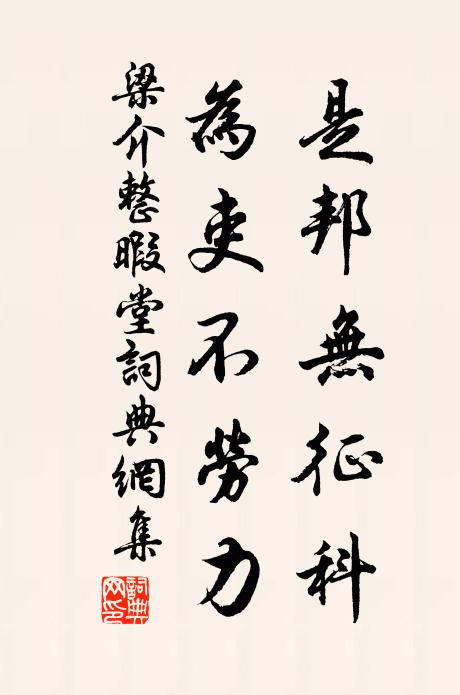 是邦無征科
為吏不勞力
梁介整暇堂詞典網集
詞典網印